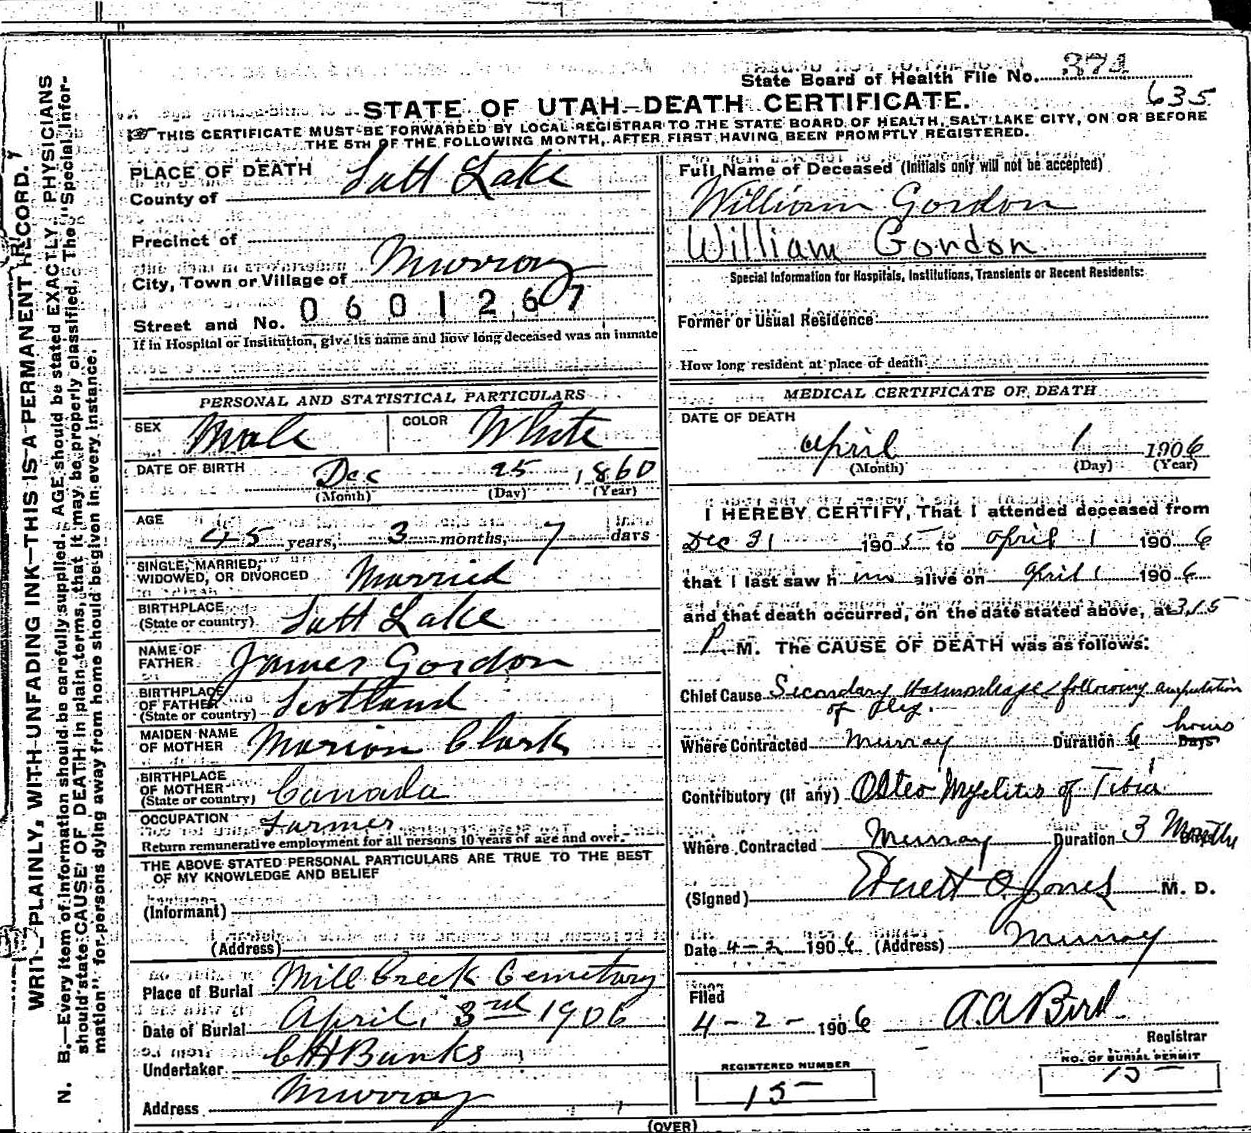 State Board of Health File No. 374
635
STATE OF UTAH—DEATH CERTIFICATE.
THIS CERTIFICATE MUST BE FORWARDED BY LOCAL REGISTRAR TO THE STATE BOARD OF HEALTH, SALT LAKE CITY, ON OR BEFORE
THE 5TH OF THE FOLLOWING MONTH, AFTER FIRST HAVING BEEN PROMPTLY REGISTERED.
WRITE PLAINLY, WITH UNFADING INK—THIS IS A PERMANENT RECORD.
N. B.—Every item of information should be carefully supplied. AGE should be stated EXACTLY. PHYSICIANS
should state CAUSE OF DEATH in plain terms, that it may be properly classified. The "Special Infor-
mation" for persons dying away from home should be given in every instance.
PLACE OF DEATH
County of Salt Lake
Precinct of
City, Town or Village of Murray
0601267
Street and No.
If in Hospital or Institution, give its name and how long deceased was an inmate
PERSONAL AND STATISTICAL PARTICULARS
SEX Male COLOR White
DATE OF BIRTH Dec 25 1860
(Month) (Day) (Year)
AGE
45 years, 3 months, 7 days
SINGLE, MARRIED,
WIDOWED, OR DIVORCED Married
BIRTHPLACE
(State or country) Salt Lake
NAME OF
FATHER James Gordon
BIRTHPLACE
OF FATHER
(State or country) Scotland
MAIDEN NAME
OF MOTHER Marion Clark
BIRTHPLACE
OF MOTHER
(State or country) Canada
OCCUPATION Farmer
Return remunerative employment for all persons 10 years of age and over.
THE ABOVE STATED PERSONAL PARTICULARS ARE TRUE TO THE BEST
OF MY KNOWLEDGE AND BELIEF
(Informant)
(Address)
Place of Burial Mill Creek Cemetary
Date of Burial April 3rd 1906
Undertaker C H Bunks
Address Murray
Full Name of Deceased (Initials only will not be accepted)
William Gordon
William Gordon
Special Information for Hospitals, Institutions, Transients or Recent Residents:
Former or Usual Residence
How long resident at place of death
MEDICAL CERTIFICATE OF DEATH
DATE OF DEATH
April 1 1906
(Month) (Day) (Year)
I HEREBY CERTIFY, That I attended deceased from
Dec 31 1905 to April 1 1906
that I last saw him alive on April 1 1906
and that death occurred, on the date stated above, at 3.15
P. M. The CAUSE OF DEATH was as follows:
Chief Cause Secondary Haemorhage following amputation
of leg.
hours
Where Contracted Murray Duration 6 Days
Contributory (if any) Osteo Myelitis of Tibia
Where Contracted Murray Duration 3 Months
(Signed) Everett O. Jones M. D.
Date 4-2 1906 (Address) Murray
Filed
4-2- 1906 A. A. Bird
Registrar
REGISTERED NUMBER
15
NO. OF BURIAL PERMIT
15
(OVER)